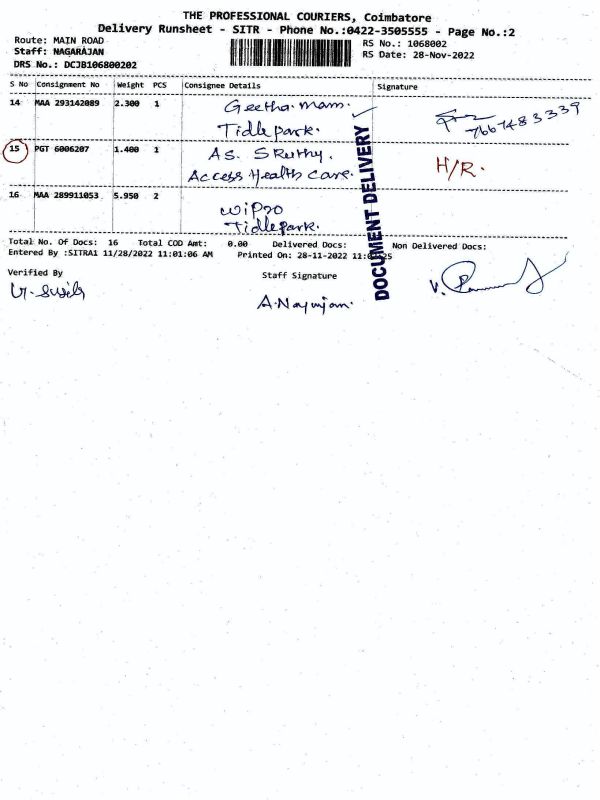 THE PROFESSIONAL COURIERS, Coimbatore
Delivery Runsheet - SITR - Phone No.:0422-3505555 - Page No.:2
Route: MAIN ROAD
Staff: NAGARAJAN
DRS No.: DCJB106800202
RS No.: 1068002
RS Date: 28-Nov-2022
S No Consignment No Weight PCS Consignee Details Signature
14 MAA 293142089 2.300 1 Geetha Mam.
Tidle park.
7667483339
15 PGT 6006207 1.400 1 AS. SRuthy. H/R.
Access Health care.
16 MAA 289911053 5.950 2 wipro
Tidle park.
DOCUMENT DELIVERY
Total No. Of Docs: 16 Total COD Amt: 0.00 Delivered Docs: Non Delivered Docs:
Entered By :SITRA1 11/28/2022 11:01:06 AM Printed On: 28-11-2022
Verified By Staff Signature